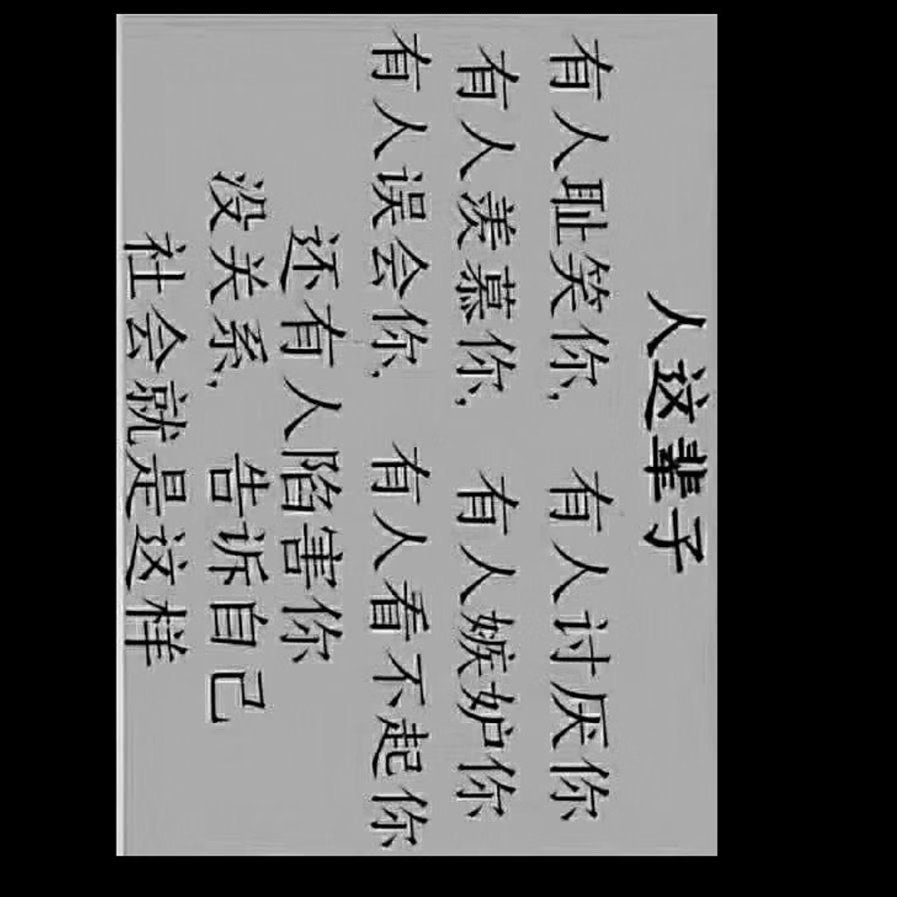 人这辈子
有人耻笑你, 有人讨厌你
有人羡慕你, 有人嫉妒你
有人误会你, 有人看不起你
还有人陷害你
没关系, 告诉自己
社会就是这样